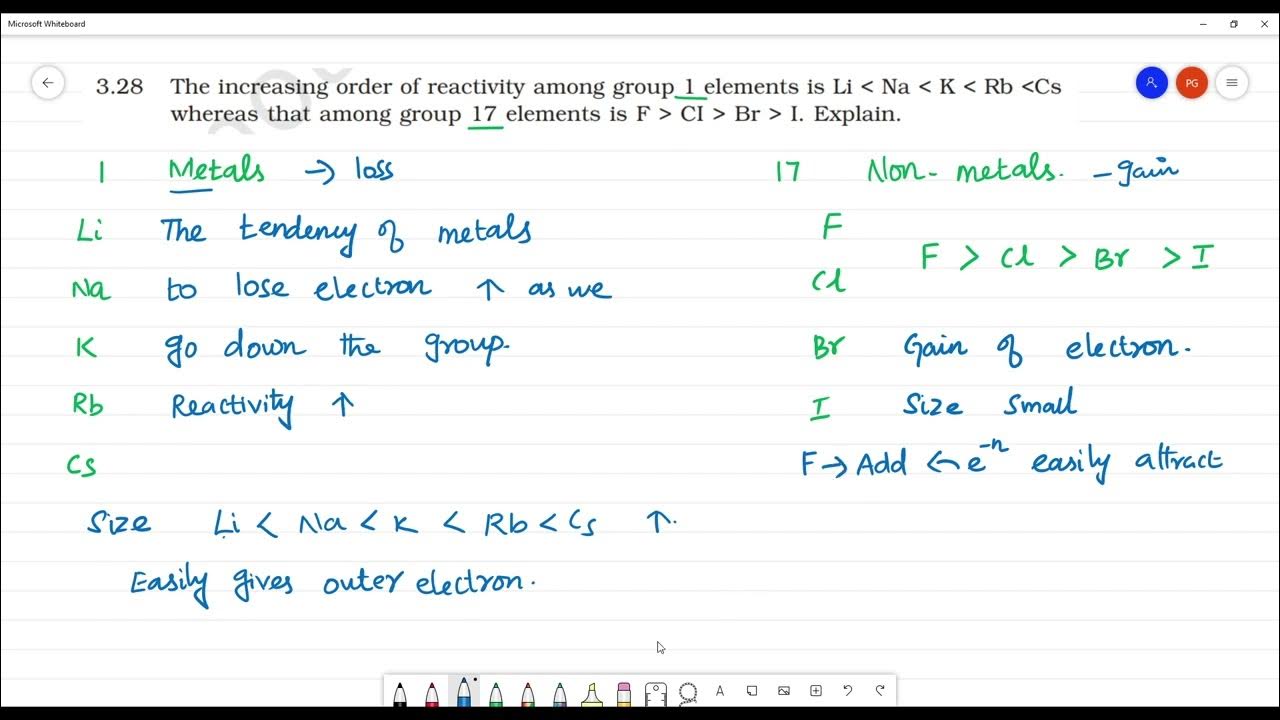 Microsoft Whiteboard
3.28 The increasing order of reactivity among group 1 elements is Li < Na < K < Rb <Cs
whereas that among group 17 elements is F > CI > Br > I. Explain.
PG
1 Metals → loss
17 Non-metals. – gain
Li The tendency of metals
F
F > Cl > Br > I
Na to lose electron ↑ as we
Cl
K go down the group.
Br Gain of electron.
Rb Reactivity ↑
I Size small
Cs
F → Add ← e⁻ⁿ easily attract
Size Li < Na < K < Rb < Cs ↑.
Easily gives outer electron.
A